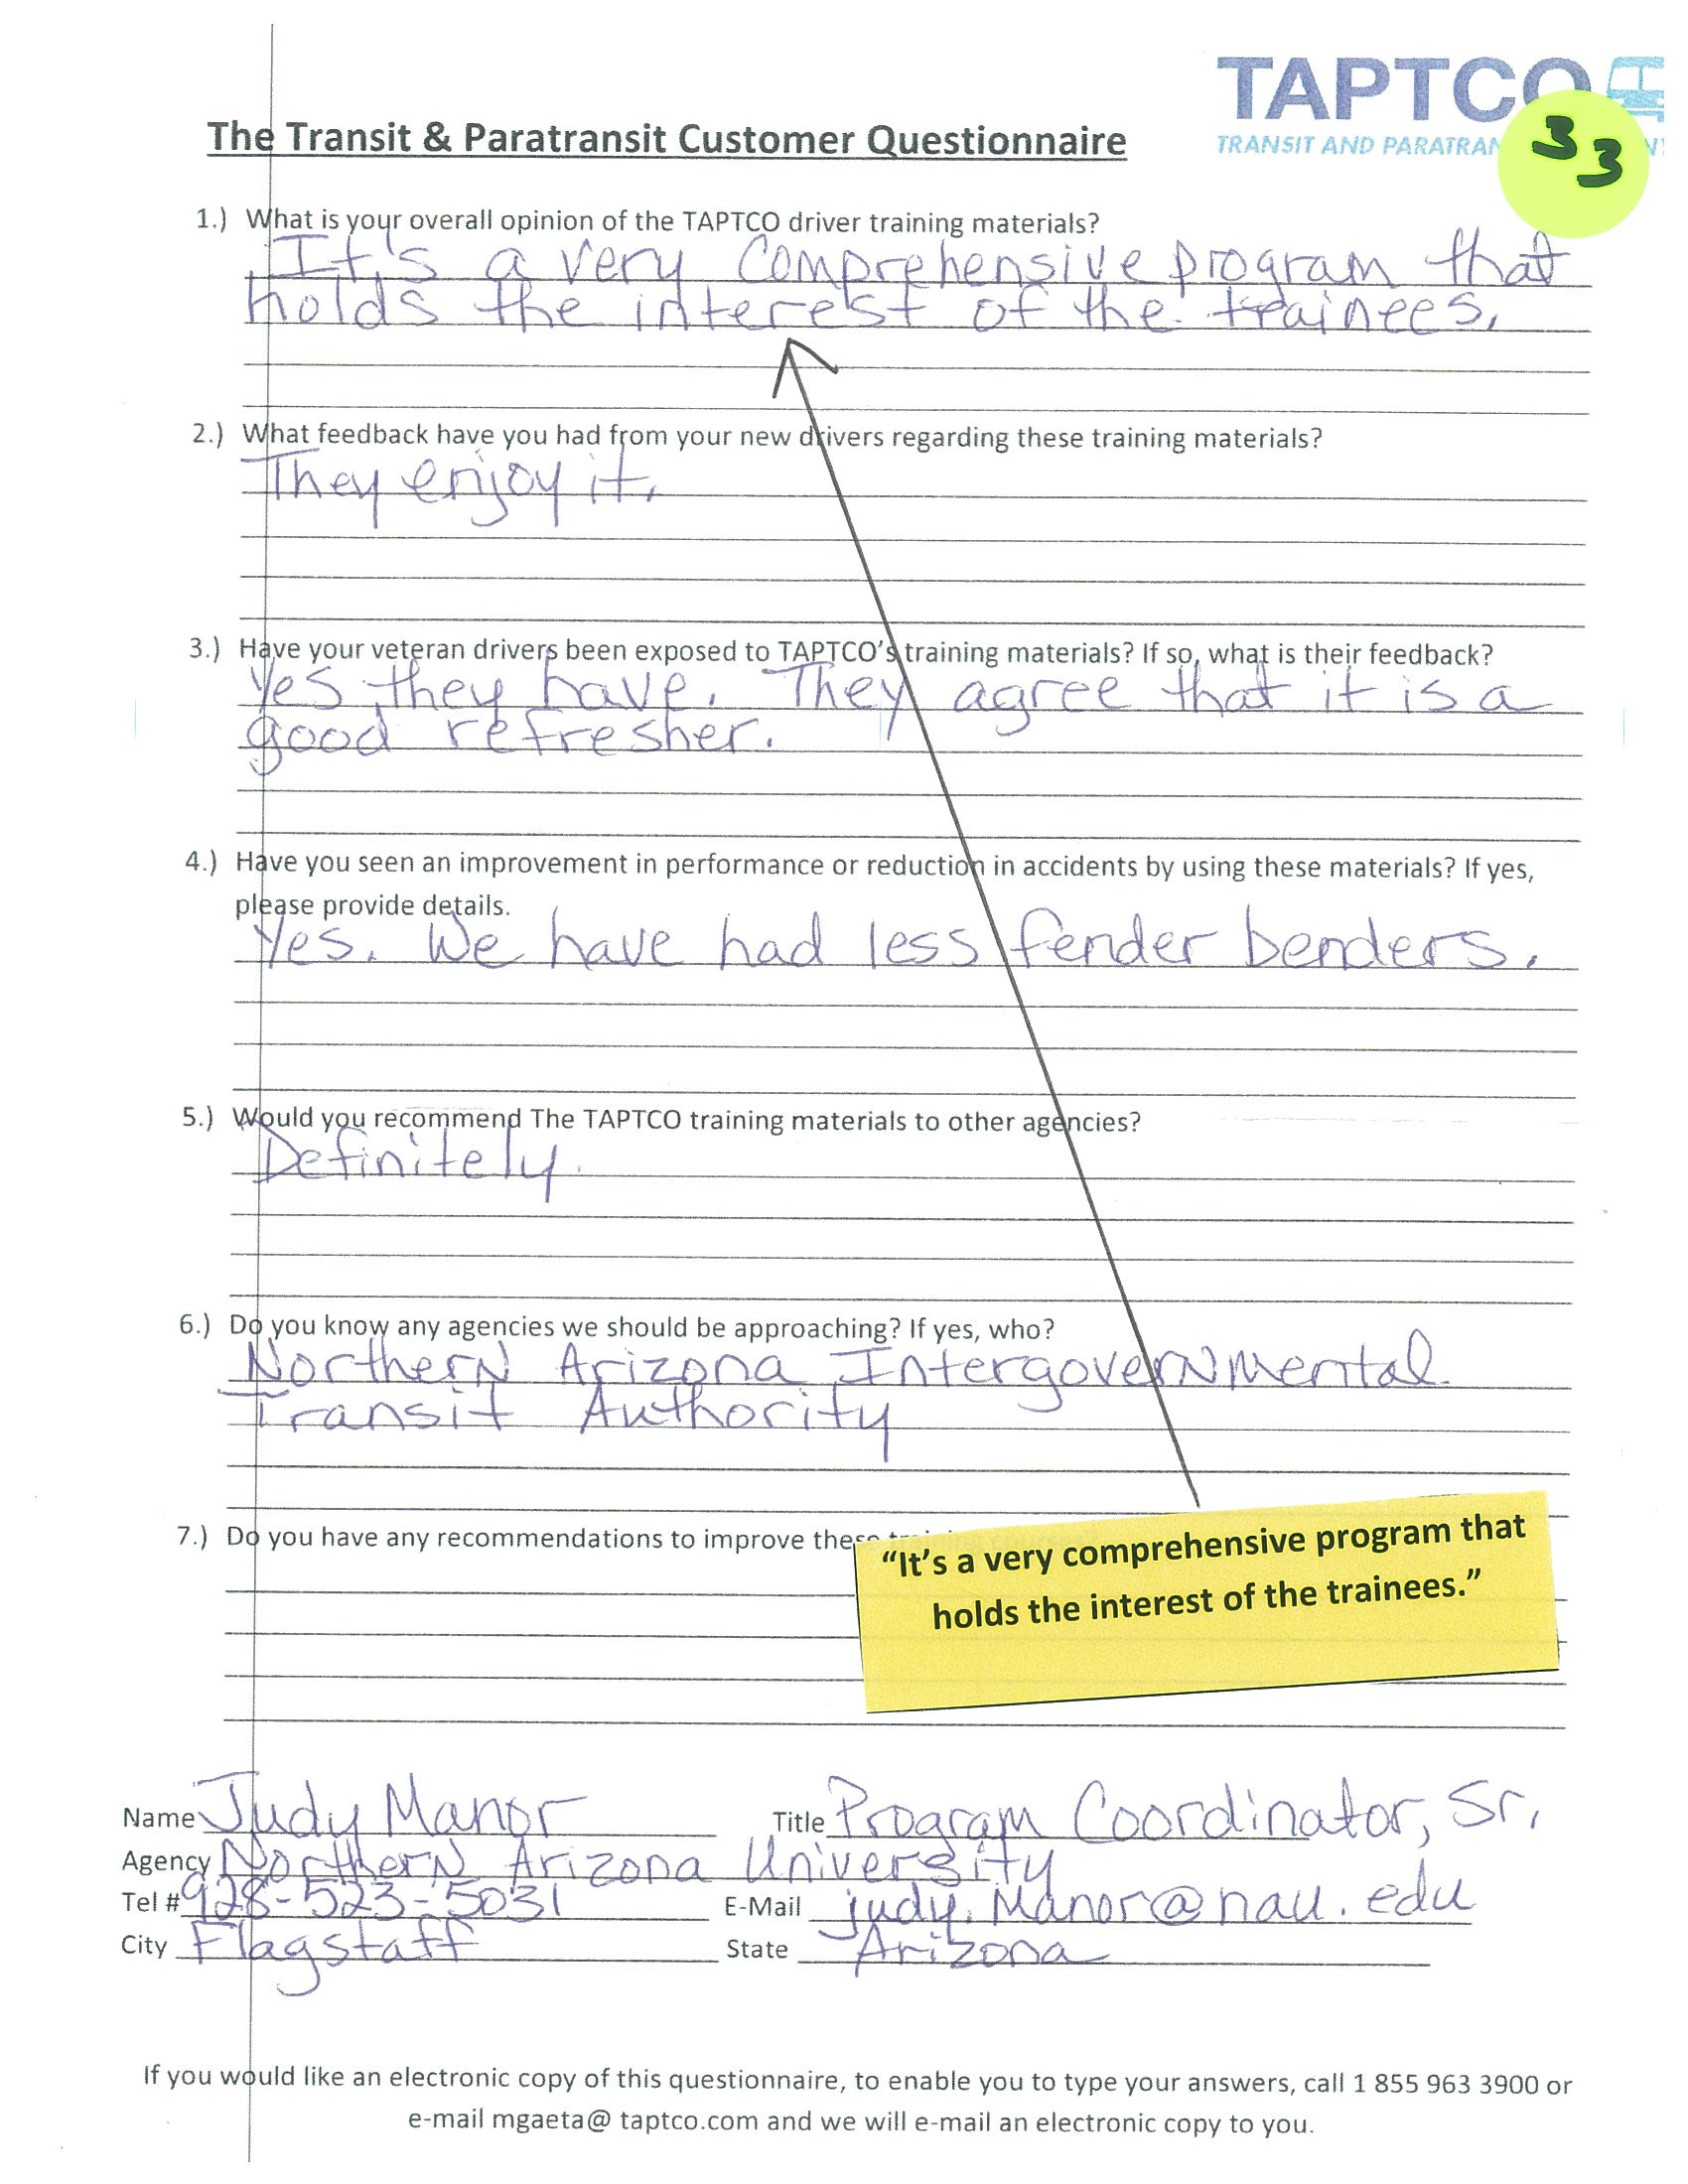 TAPTCO
TRANSIT AND
33
The Transit & Paratransit Customer Questionnaire
1.) What is your overall opinion of the TAPTCO driver training materials?
It's a very comprehensive program that
holds the interest of the trainees.
2.) What feedback have you had from your new drivers regarding these training materials?
They enjoy it.
3.) Have your veteran drivers been exposed to TAPTCO's training materials? If so, what is their feedback?
Yes they have. They agree that it is a
good refresher.
4.) Have you seen an improvement in performance or reduction in accidents by using these materials? If yes,
please provide details.
Yes. We have had less fender benders.
5.) Would you recommend The TAPTCO training materials to other agencies?
Definitely.
6.) Do you know any agencies we should be approaching? If yes, who?
Northern Arizona Intergovernmental
Transit Authority
7.) Do you have any recommendations to improve these
"It's a very comprehensive program that
holds the interest of the trainees."
Name Judy Manor Title Program Coordinator, Sr.
Agency Northern Arizona University
Tel # 928-523-5031 E-Mail judy.Manor@nau.edu
City Flagstaff State Arizona
If you would like an electronic copy of this questionnaire, to enable you to type your answers, call 1 855 963 3900 or
e-mail mgaeta@ taptco.com and we will e-mail an electronic copy to you.